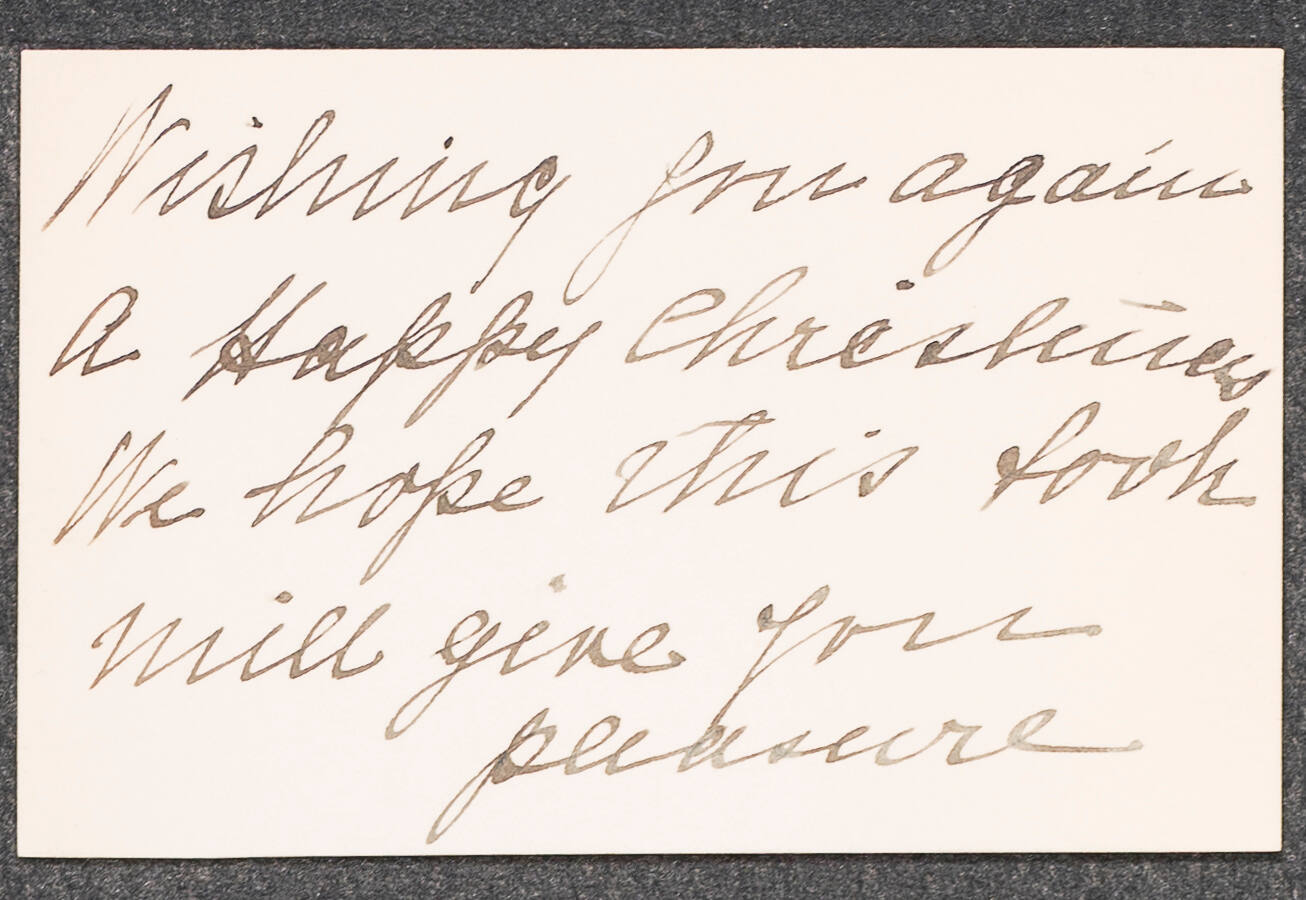 Wishing you again
A Happy Christmas
We hope this book
will give you
pleasure